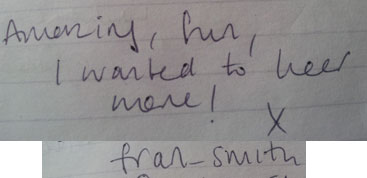 Amazing, fun,
I wanted to heer
more!
X
fran-smith